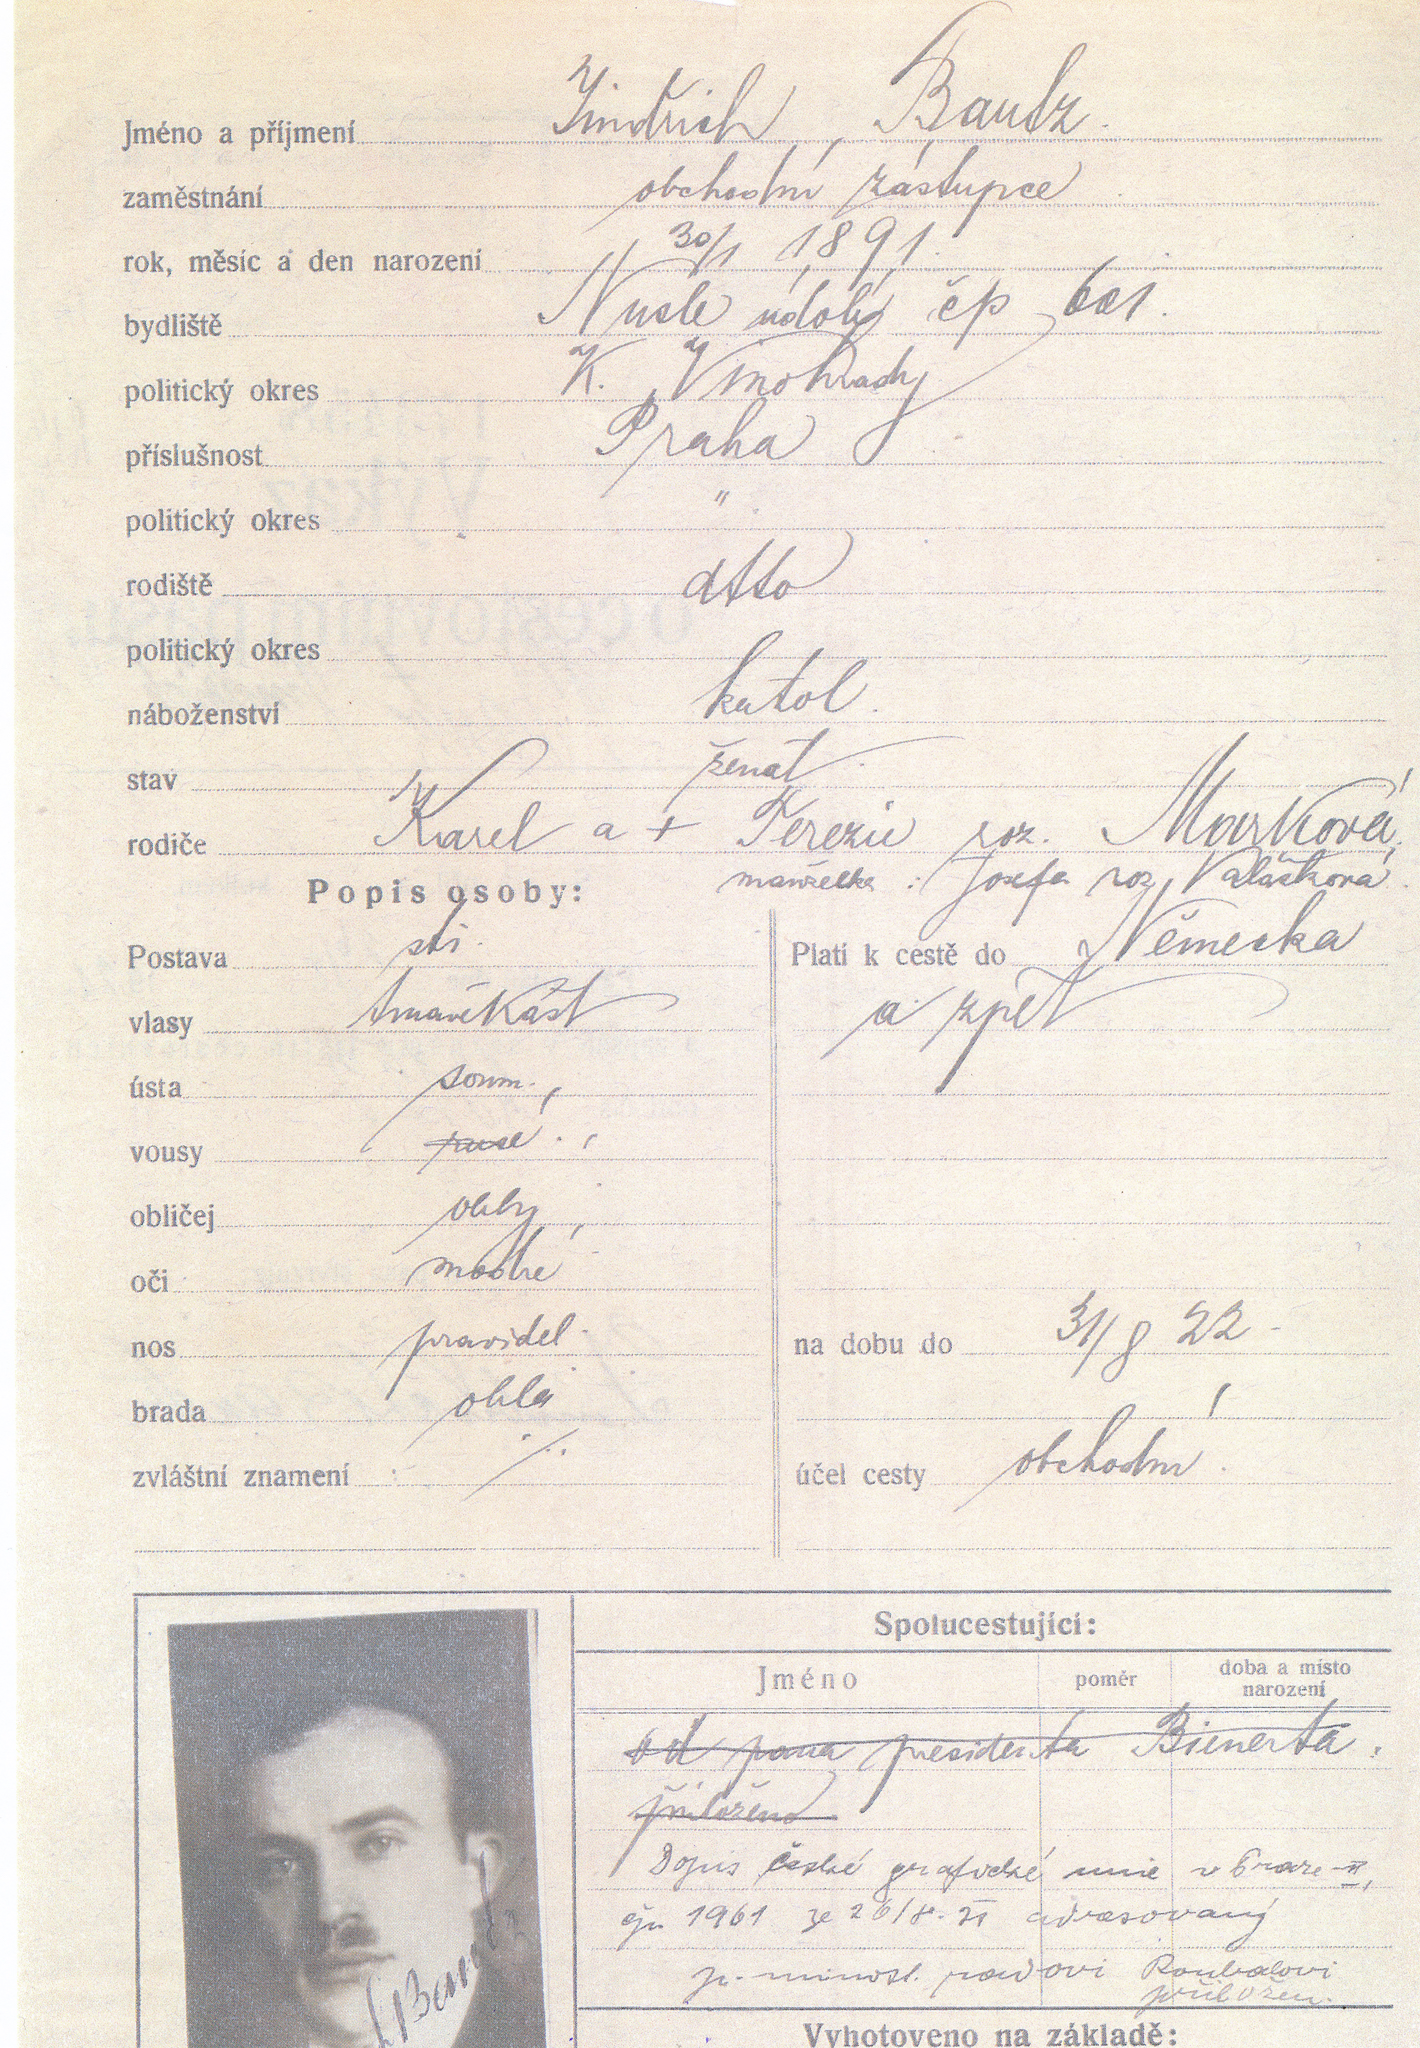 Jméno a příjmení Jindřich Bautz.
zaměstnání obchodní zástupce
rok, měsíc a den narození 30/1 1891.
bydliště Nusle údolí čp 601.
politický okres K. Vinohrady
příslušnost Praha
politický okres "
rodiště dtto
politický okres
náboženství katol.
stav ženat.
rodiče Karel a + Terezie roz. Marková,
manželka: Josefa roz. Valášková.
Popis osoby:
Postava stř.
vlasy tmavěkašt
ústa soum.
vousy
obličej oblý
oči modré
nos pravidel.
brada oblá
zvláštní znamení ./.
Platí k cestě do Německa
a zpět
na dobu do 31/8 22
účel cesty obchodní.
Spolucestující:
Jméno poměr doba a místo narození
od pana presidenta Bienerta
přiloženo
Dopis české grafické unie v Praze-II,
čjn 1961 ze 26/8. 21 adresovaný
p. minist. radovi Roubalovi
přiložen.
Bautz
Vyhotoveno na základě: